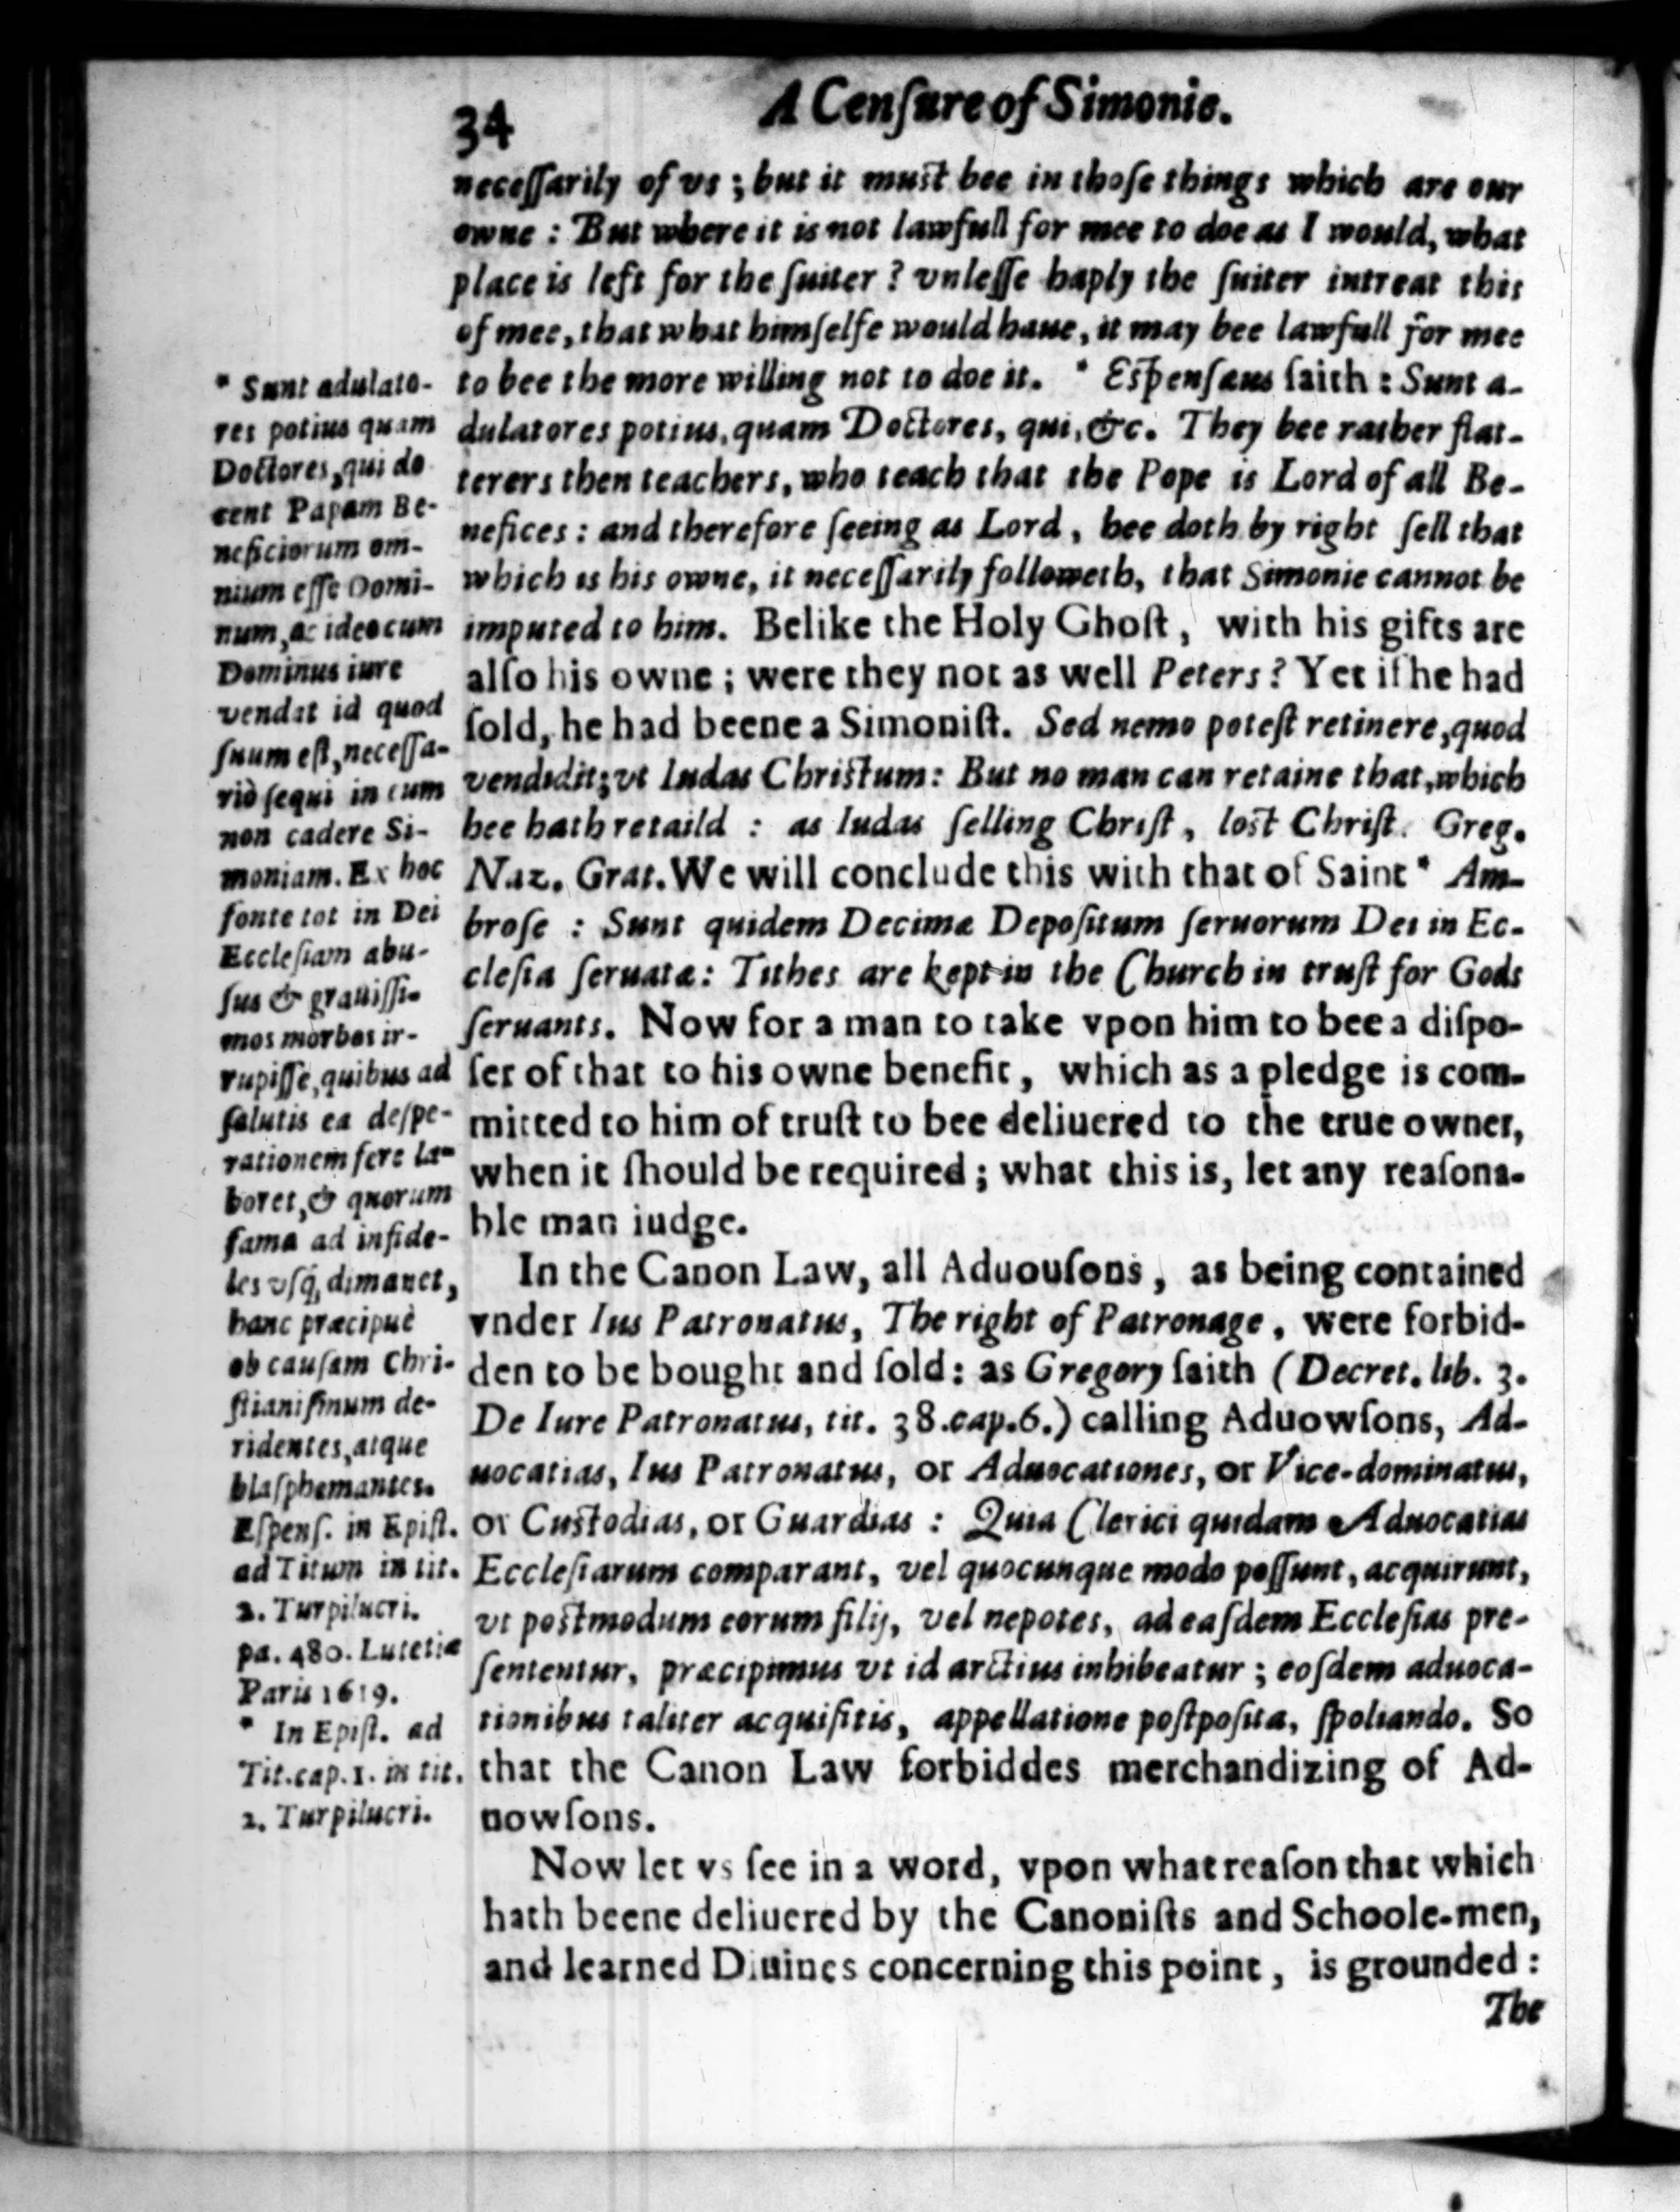 34
A Cenſure of Simonie.
neceſſarily of vs; but it must bee in thoſe things which are our
owne: But where it is not lawfull for mee to doe as I would, what
place is left for the ſuiter? vnleſſe haply the ſuiter intreat this
of mee, that what himſelfe would haue, it may bee lawfull for mee
to bee the more willing not to doe it. * Eſpenſæus ſaith: Sunt a-
dulatores potius, quam Doctores, qui, &c. They bee rather flat-
terers then teachers, who teach that the Pope is Lord of all Be-
nefices: and therefore ſeeing as Lord, hee doth by right ſell that
which is his owne, it neceſſarily followeth, that Simonie cannot be
imputed to him. Belike the Holy Ghoſt, with his gifts are
alſo his owne; were they not as well Peters? Yet if he had
ſold, he had beene a Simoniſt. Sed nemo poteſt retinere, quod
vendidit; vt Iudas Christum: But no man can retaine that, which
hee hath retaild: as Iudas ſelling Chriſt, lost Chriſt. Greg.
Naz. Grat. We will conclude this with that of Saint * Am-
broſe: Sunt quidem Decimæ Depoſitum ſeruorum Dei in Ec-
cleſia ſeruatæ: Tithes are kept in the Church in truſt for Gods
ſeruants. Now for a man to take vpon him to bee a diſpo-
ſer of that to his owne benefit, which as a pledge is com-
mitted to him of truſt to bee deliuered to the true owner,
when it ſhould be required; what this is, let any reaſona-
ble man iudge.
In the Canon Law, all Aduouſons, as being contained
vnder Ius Patronatus, The right of Patronage, were forbid-
den to be bought and ſold: as Gregory ſaith (Decret. lib. 3.
De Iure Patronatus, tit. 38. cap. 6.) calling Aduowſons, Ad-
uocatias, Ius Patronatus, or Aduocationes, or Vice-dominatus,
or Custodias, or Guardias: Quia Clerici quidam Aduocatias
Eccleſiarum comparant, vel quocunque modo poſſunt, acquirunt,
vt postmodum eorum filij, vel nepotes, ad eaſdem Eccleſias pre-
ſententur, præcipimus vt id arctius inhibeatur; eoſdem aduoca-
tionibus taliter acquiſitis, appellatione poſtpoſita, ſpoliando. So
that the Canon Law forbiddes merchandizing of Ad-
uowſons.
Now let vs ſee in a word, vpon what reaſon that which
hath beene deliuered by the Canoniſts and Schoole-men,
and learned Diuines concerning this point, is grounded:
The
* Sunt adulato-
res potius quam
Doctores, qui do
cent Papam Be-
neficiorum om-
nium eſſe Domi-
num, ac ideo cum
Dominus iure
vendat id quod
ſuum eſt, neceſſa-
riò ſequi in eum
non cadere Si-
moniam. Ex hoc
fonte tot in Dei
Eccleſiam abu-
ſus & grauiſſi-
mos morbos ir-
rupiſſe, quibus ad
ſalutis ea deſpe-
rationem fere la-
boret, & quorum
fama ad infide-
les vſq, dimanet,
hanc præcipuè
ob cauſam Chri-
ſtianiſmum de-
ridentes, atque
blaſphemantes.
Eſpenſ. in Epiſt.
ad Titum in tit.
2. Turpilucri.
pa. 480. Lutetiæ
Paris 1619.
* In Epiſt. ad
Tit. cap. 1. in tit.
2. Turpilucri.